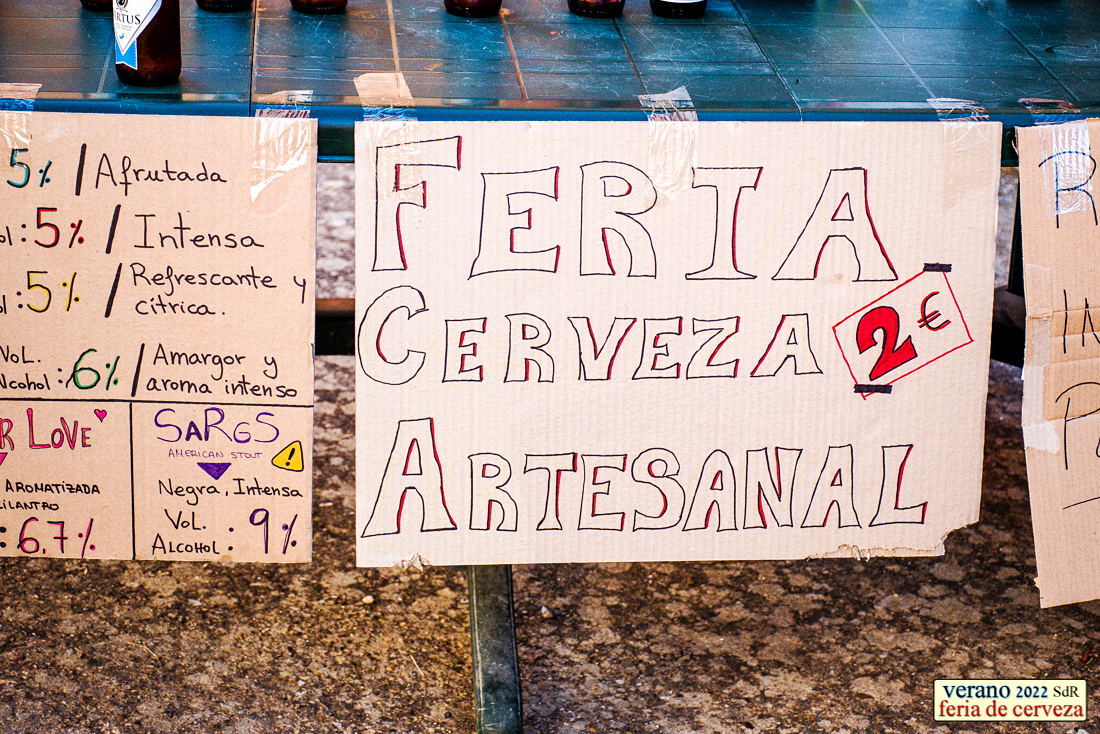 5% / Afrutada
ol: 5% / Intensa
ol: 5% / Refrescante y
cítrica.
Vol.
Alcohol: 6% / Amargor y
aroma intenso
R LOVE
AROMATIZADA
CILANTRO
: 6,7%
SARGS
AMERICAN STOUT
!
Negra, Intensa
Vol.
Alcohol: 9%
FERIA
CERVEZA 2€
ARTESANAL
verano 2022 SdR
feria de cerveza